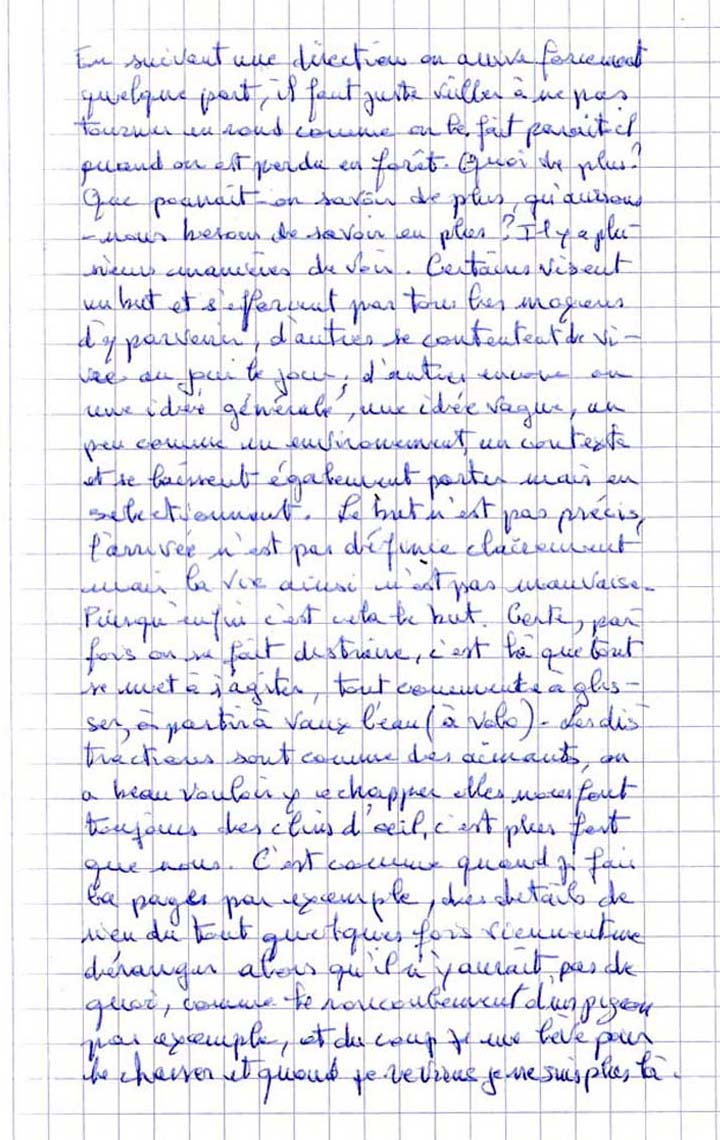 En suivant une direction on arrive forcement
quelque part, il faut juste veiller à ne pas
tourner en rond comme on le fait parait il
quand on est perdu en forêt. Quoi de plus?
Que pourrait-on savoir de plus, qu'aurions
-nous besoin de savoir en plus ? Il y a plu-
sieurs manières de voir. Certains visent
un but et s'efforcent par tous les moyens
d'y parvenir, d'autres se contentent de vi-
vre au jour le jour, d'autres encore on
une idée générale, une idée vague, un
peu comme un environnement, un contexte
et se laissent également porter mais en
sélectionnant. Le but n'est pas précis,
l'arrivée n'est pas définie clairement
mais la vie ainsi n'est pas mauvaise.
Puisqu'enfin c'est cela le but. Certe, par
fois on se fait distraire, c'est là que tout
se met à s'agiter, tout commence à glis-
ser, à partir à vaux l'eau (à volo). Les dis
tractions sont comme des aimants, on
a beau vouloir y echapper elles nous font
toujours des clins d'œil, c'est plus fort
que nous. C'est comme quand je fais
la pages par exemple, des details de
rien du tout quelques fois viennent me
déranger alors qu'il n'y aurait pas de
quoi, comme le roucoulement d'un pigeon
par exemple, et du coup je me lève pour
le chasser et quand je reviens je ne suis plus là.